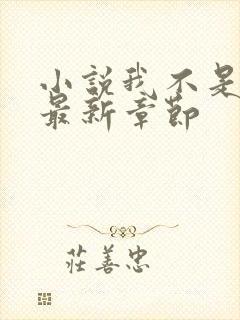 小説我不是
最新章節
莊善忠